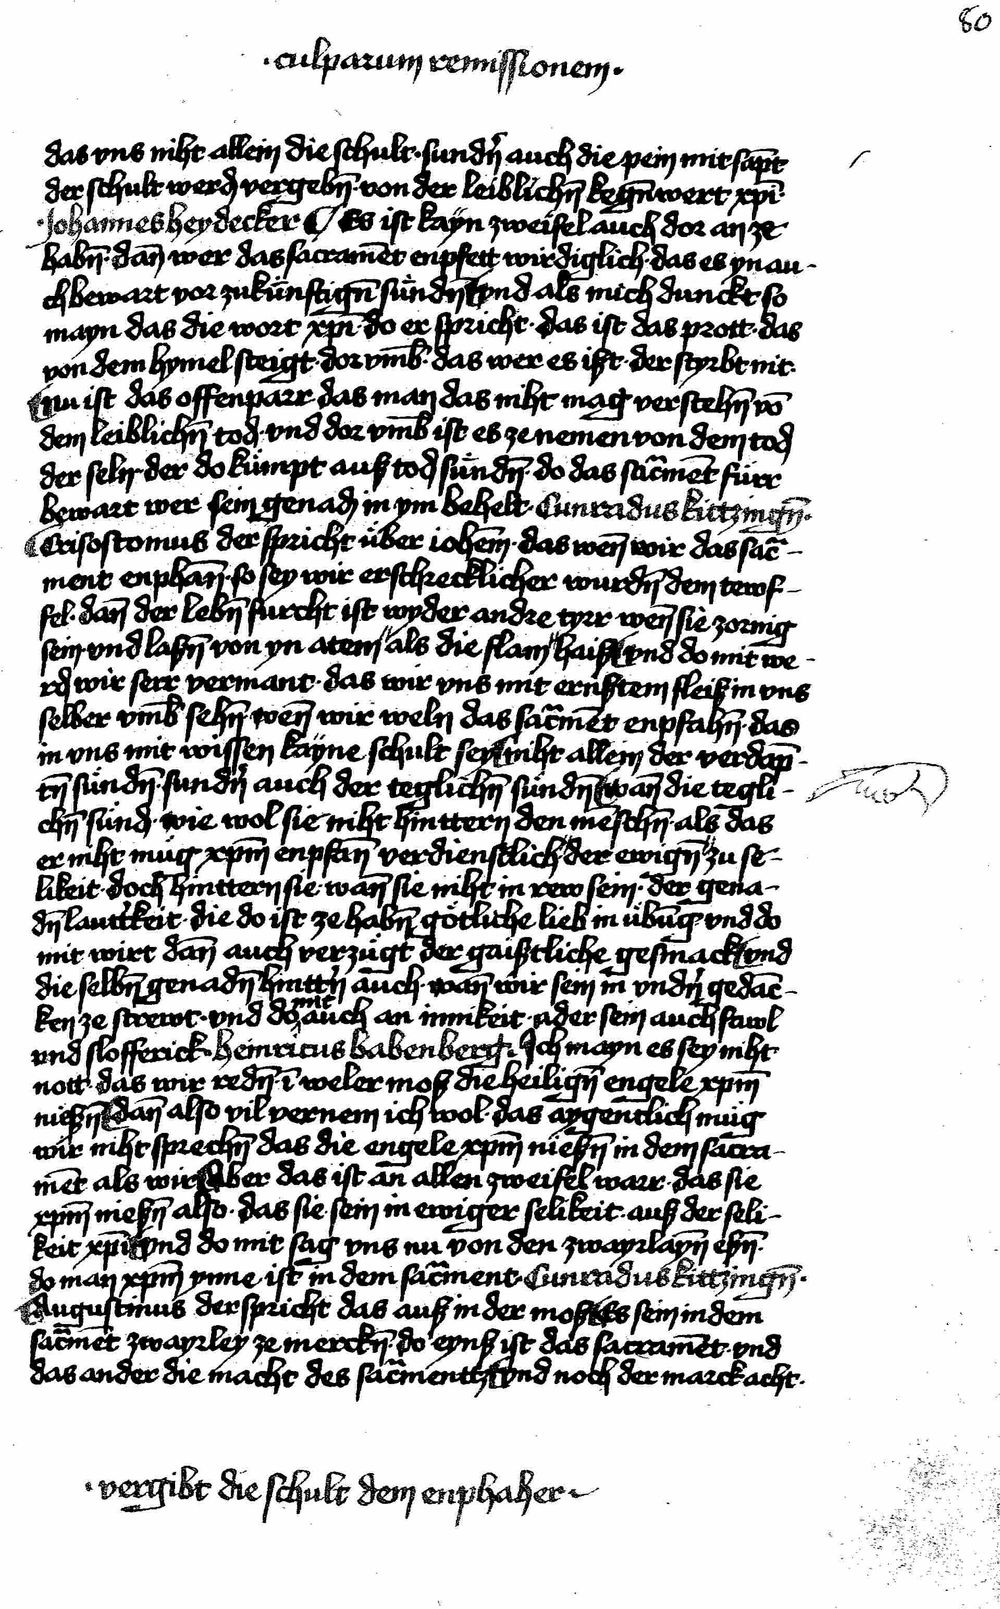 80
·culparum remissionem·
das vns niht allein die schult·sundn̄ auch die pein mit sāpt
der schult werdn vergebn̄·von der leiblichn̄ kegn̄wert xp̄i·
·Johannes heydecker Es ist kaÿn zweifel auch dor an ze
habn̄·dan̄ wer das sacramēt enpfett wirdiglich·das es yn au-
ch bewart vor zukünftign̄ sündn̄ vnd als mich dunckt so
mayn das die wort xp̄i·do er spricht·das ist das prott·das
von dem hymel steigt·dor vmb̄·das wer es ißt·der styrbt nit·
nu ist das offenparr·das man das niht mag verstehn̄ vō
dem leiblichn̄ tod·vnd dor vmb̄ ist es ze nemen von dem tod
der seln·der do kümpt auß tod sündn̄·do das sac̄ment fürr
bewart wer sein genad in ym behelt·Cunradus kittzingn̄·
Crisostomus der spricht·über iohem̄·das wen̄ wir das sac̄-
ment enphan̄·so sey wir erschrecklicher wurdn̄ dem tewf-
fel·dan̄ der lebn̄ furcht ist wyder andre tyrr wen̄ sie zornig
sein·vnd laßn̄ von yn atem als die flam haiß vnd do mit we-
rdn wir serr vermant·das wir vns mit ernstem fleiß in vns
selber vmb̄ sehn̄·wen̄ wir weln das sac̄mēt enpfahn̄·das
in vns mit wissen kaÿne schult sey niht allein der verdap̄-
tn̄ sündn̄·sundn̄ auch der teglichn̄ sündn̄ wan̄ die tegli-
chn̄ sünd·wie wol sie niht hinttern den mēschn̄·als das
er niht müg xp̄m enpfan̄ verdienstlich der ewign̄ zu se-
likeit·doch hinttern sie·wan̄ sie niht in rew sein·der gena-
dn̄ lautr̄keit·die do ist ze habn̄ götliche lieb in übūg·vnd do
mit wirt dan̄ auch verzügt der gaistliche gesmack vnd
die selbn̄ genadn̄ hinttr̄n auch·wan̄ wir sein in vndn̄ gedāc-
ken ze strewt·vnd do mit auch an innikeit·ader sein auch fawl
vnd slofferick·heinricus babenberg·Ich mayn es sey niht
nott·das wir redn̄·ī weler moß die heilign̄ engele xp̄m
nießn̄ dan̄ also vil vernem ich wol·das aygentlich müg
wir niht sprechn̄ das die engele xp̄m nießn̄ in dem sacra-
mēt als wir Aber das ist an allen zweifel warr·das sie
xp̄m nießn̄ also·das sie sein in ewiger selikeit·auß der seli-
keit xp̄i vnd do mit sag vns nu von den zwayrlayn̄ eßn̄·
do man xp̄m ynne·ist in dem sac̄ment·Cunradus kittzingn̄·
Augustinus der spricht das auß in der moß Es sein in dem
sac̄mēt zwayrley ze merckn̄·do eynß ist das sacramēt·vnd
das ander die macht des sac̄menttz vnd noch der marck acht·
·vergibt die schult dem enphaher·